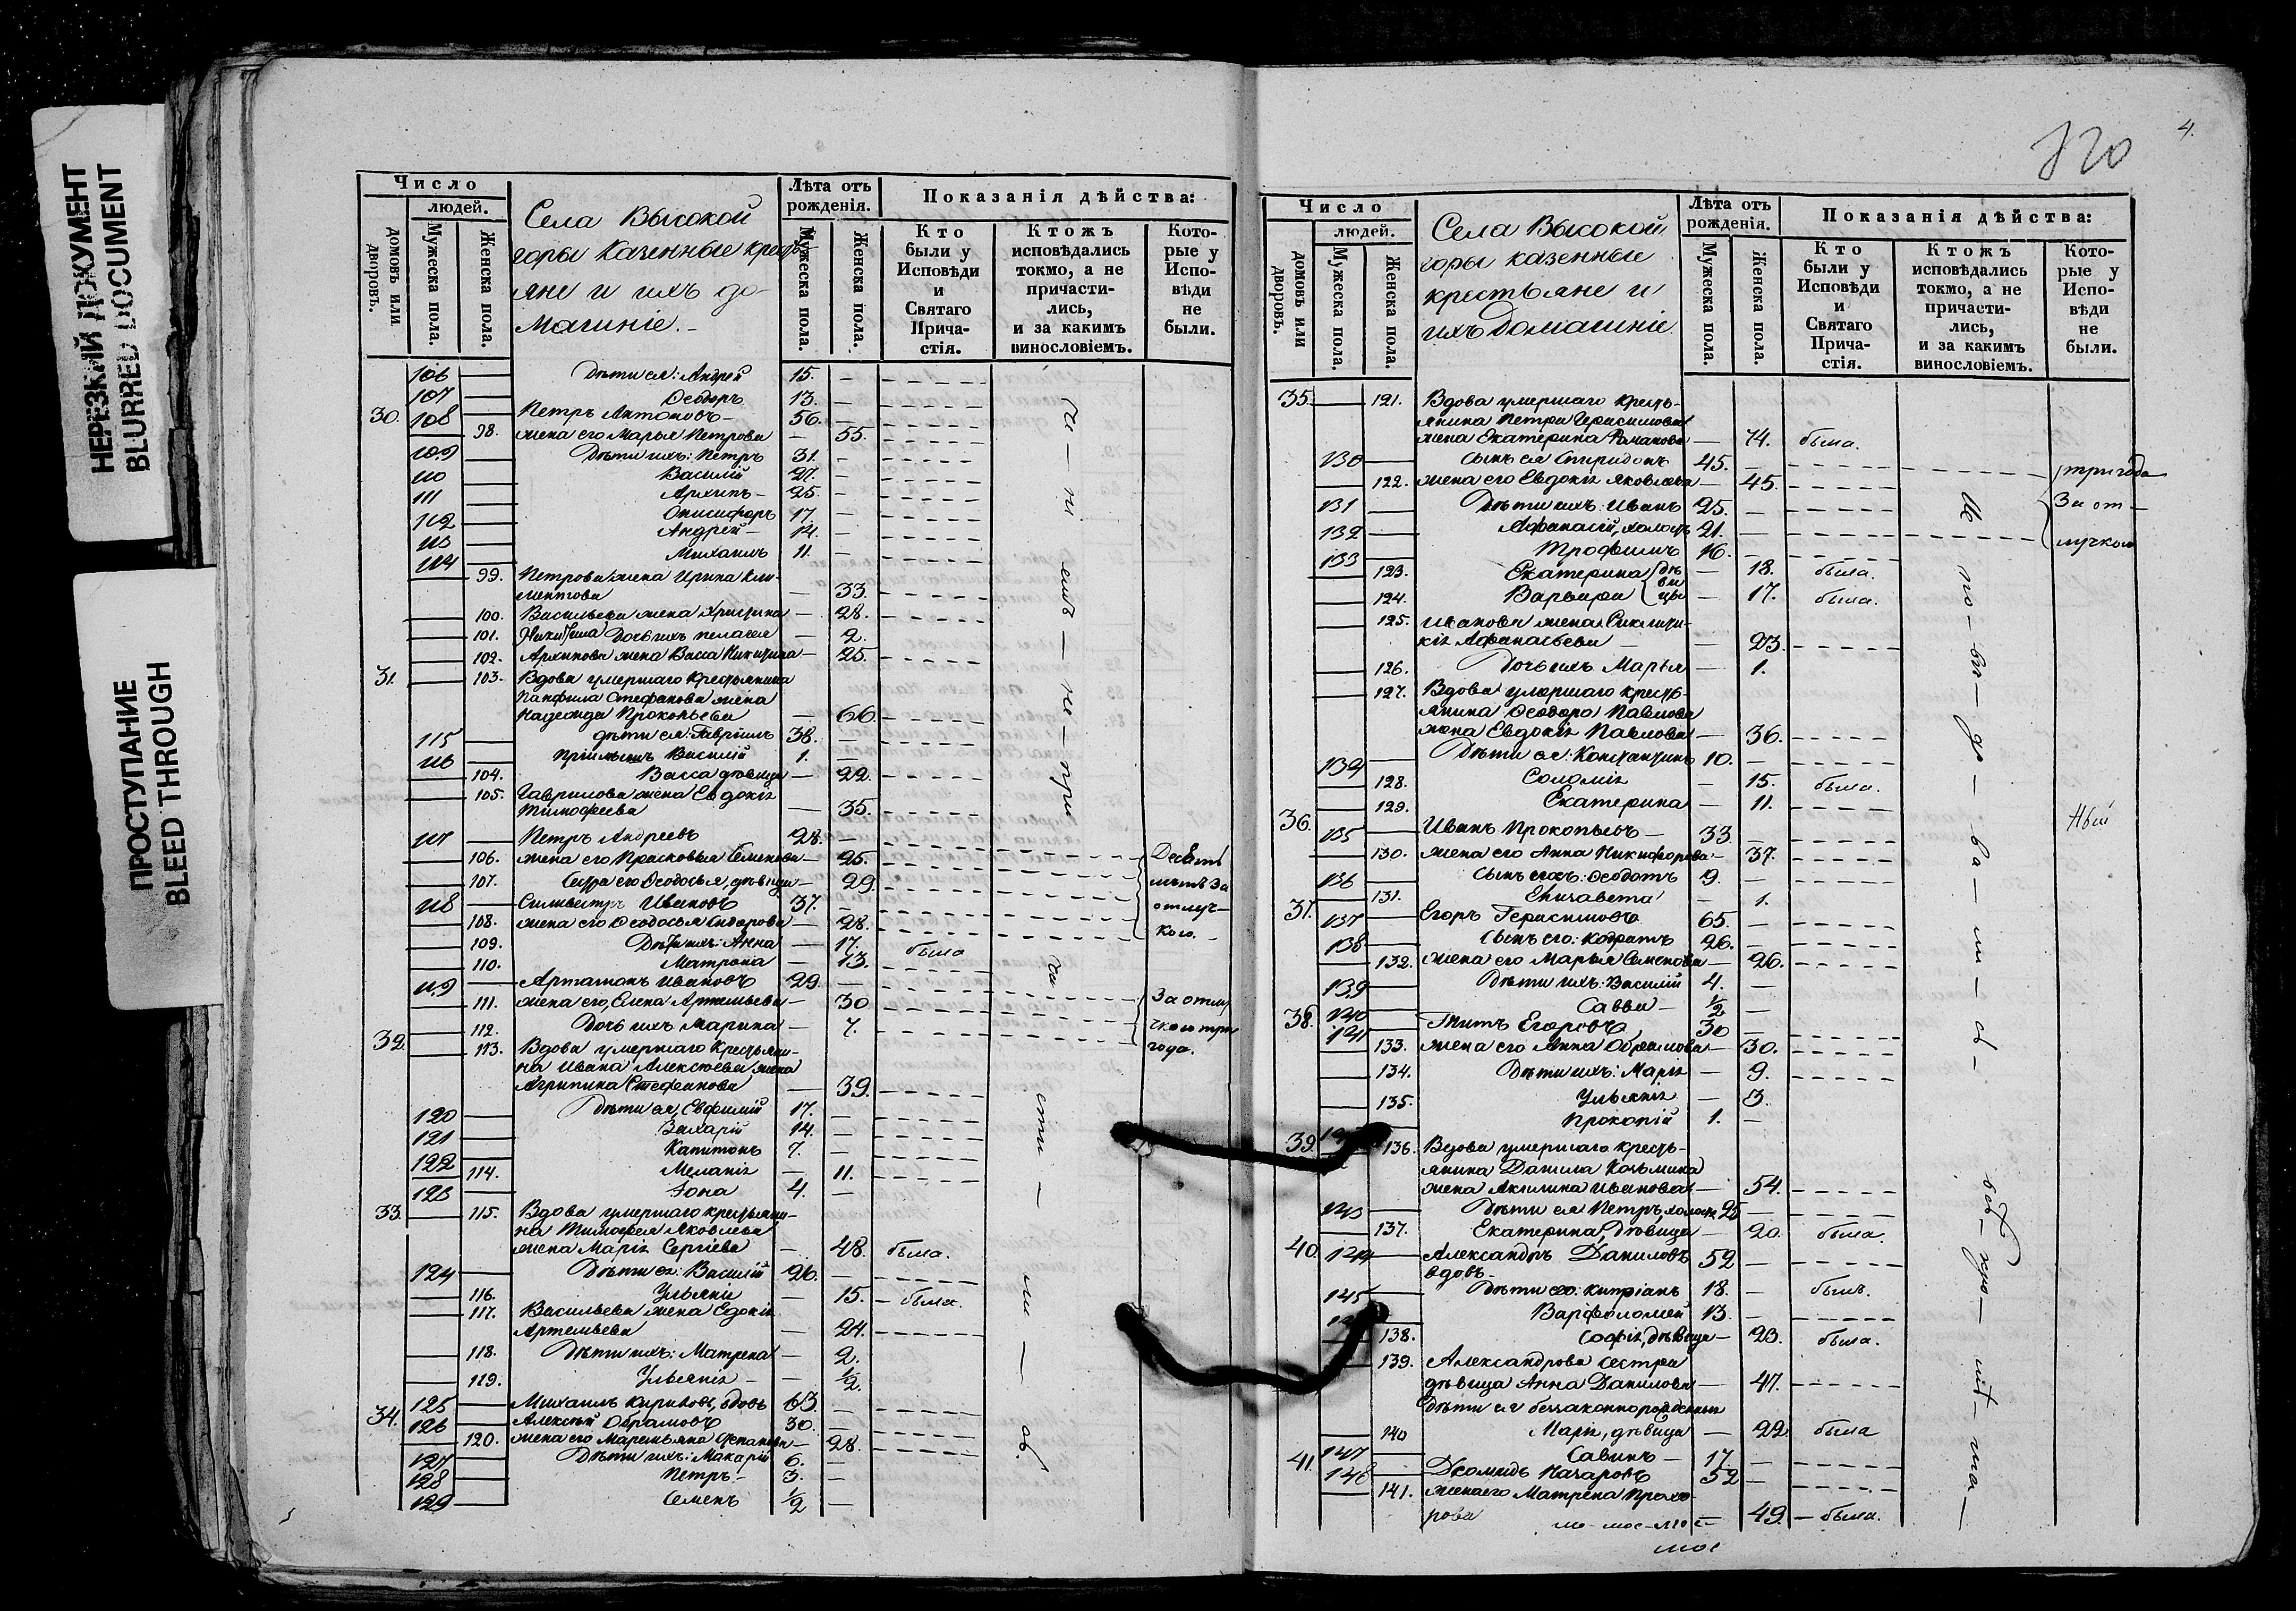 НЕРЕЗКИЙ ДОКУМЕНТ
BLURRED DOCUMENT
ПРОСТУПАНИЕ
BLEED THROUGH
Число
людей.
домовъ или дворовъ.
Мужеска пола.
Женска пола.
Села Высокой
горы казенные кресть-
яне и ихъ до-
машніе.
Лѣта отъ рожденія.
Мужеска пола.
Женска пола.
Показанія дѣйства:
Кто были у Исповѣди и Святаго Прича-стія.
Ктожъ исповѣдались токмо, а не причасти-лись, и за какимъ винословіемъ.
Кото-рые у Испо-вѣди не были.
106 Дѣти ея: Андрей 15.
107 Ѳеодоръ 13.
30. 108 Петръ Антоновъ 56.
98. жена его Марья Петрова 55.
109 Дѣти ихъ: Петръ 31.
110 Василій 27.
111 Архипъ 25.
112 Онисифоръ 17.
113 Андрей 14.
114 Михаилъ 11.
99. Петрова жена Ирина Кли-
ментова 33.
100. Васильева жена Христина 28.
101. Никитина Дочь ихъ Пелагея 2.
102. Архипова жена Васса Никитина 25.
31. 103. Вдова умершаго крестьянина
Панфила Стефанова жена
Надежда Прокопьева 66
115 дѣти ея: Гавріилъ 38.
116 Пріимышъ Василій 1.
104. Васса дѣвица 22.
105. Гаврилова жена Евдокія
Тимофеева 35.
117 Петръ Андреевъ 28.
106. жена его Прасковья Семенова 25. Десять
107. Сестра его Ѳеодосья, дѣвица 29. лѣтъ за
118 Сильвестръ Ивановъ 37. отлуч-
108. жена его Ѳеодосья Сидорова 28. кою.
109. Дѣти ихъ: Анна 17. была
110. Матрона 13.
119 Артамонъ Ивановъ 29
111. жена его, Елена Артемьева 30 За отлу
112. Дочь ихъ Марина 7. чкою три
32. 113. Вдова умершаго крестьяни- года.
на Ивана Алексѣева жена
Агрипина Стефанова 39.
120 Дѣти ея, Евфимій 17.
121 Захарій 14.
122 Капитонъ 7.
114. Меланія 11.
123 Іона 4.
33. 115. Вдова умершаго крестьяни-
на Тимофея Яковлева
жена Марія Сергіева 48. была.
124 Дѣти ея: Василій 26.
116. Ульянія 15. была.
117. Васильева жена Едокія
Артемьева 24.
118. Дѣти ихъ: Матрена 2.
119. Ульянія ½.
125 Михаилъ Кириловъ, вдовъ 63.
34. 126 Алексѣй Обрамовъ 30.
120. жена его Маремьяна Степанова 28.
127 Дѣти ихъ: Макарій 6.
128 Петръ 3.
129 Семенъ ½
4.
Число
людей.
домовъ или дворовъ.
Мужеска пола.
Женска пола.
Села Высокой
горы казенные
крестьяне и
ихъ домашніе
Лѣта отъ рожденія.
Мужеска пола.
Женска пола.
Показанія дѣйства:
Кто были у Исповѣди и Святаго Прича-стія.
Ктожъ исповѣдались токмо, а не причасти-лись, и за какимъ винословіемъ.
Кото-рые у Испо-вѣди не были.
35. 121. Вдова умершаго кресть-
янина Петра Герасимова
жена Екатерина Романова 74. была.
130 Сынъ ея Спиридонъ 45. три года
122. жена его Евдокія Яковлева 45.
131 Дѣти ихъ: Иванъ 25. За от-
132 Афанасій, холостъ 21.
133 Трофимъ 16. лучкою
123. Екатерина дѣ 18. была.
ви
124. Варвара цы 17. была.
125. Иванова жена
кія Афанасьева 23.
126. Дочь ихъ Марья 1.
127. Вдова умершаго кресть-
янина Ѳеодора Павлова
жена Евдокія Павлова 36.
134 Дѣти ея: Константинъ 10.
128. Соломія 15. была.
129. Екатерина 11.
36. 135 Иванъ Прокопьевъ 33
130. жена его Анна Никифорова 37.
136 Сынъ ихъ: Ѳеодотъ 9.
131. Елизавета 1.
37. 137 Егоръ Герасимовъ 65.
138 Сынъ его: Кодратъ 26.
132. жена его Марья Семенова 26.
139 Дѣти ихъ: Василій 4.
140 Савва ½
38. 141 Титъ Егоровъ 30
133. жена его Анна Обрамова 30.
134. Дѣти ихъ: Марія 9.
135. Ульянія 3.
Прокопій 1.
39. 136. Вдова умершаго кресть-
янина Данила Козьмина
жена Акилина Иванова 54.
143 Дѣти ея Петръ, холостъ 25
137. Екатерина, дѣвица 20. была.
40. 144 Александръ Даниловъ 52
вдовъ
145 Дѣти его: Кипріанъ 18. былъ.
Варфоломей 13.
138. Софія, дѣвица 23. была.
139. Александрова сестра
дѣвица Анна Данилова 47.
Дѣти ея беззаконнорожденныя
140 Марія, дѣвица 22. была
147 Савинъ 17.
41. 148 Діомидъ Назаровъ 52
141. жена его Матрена Прохо-
рова 49. была.